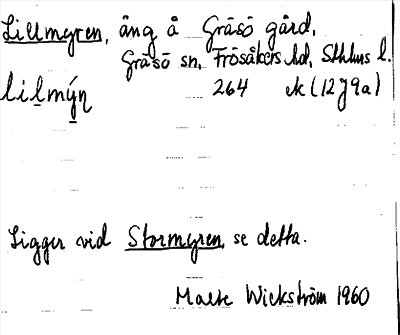 Lillmyren, äng å Gräsö gård,
Gräsö sn, Frösåkers hd, Sthlms l.
lilmýn̥ 264 ek (12J9a)
Ligger vid Stormyren, se detta.
Malte Wickström 1960